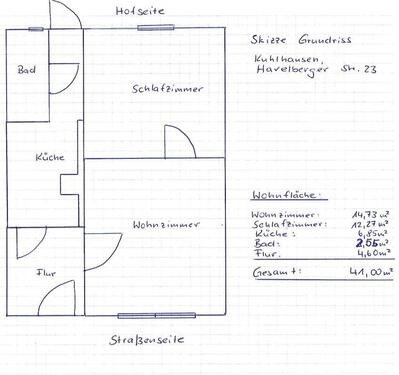 Hofseite
Skizze Grundriss
Kuhlhausen,
Havelberger Str. 23
Bad
Schlafzimmer
Küche
Wohnzimmer
Flur
Straßenseite
Wohnfläche:
Wohnzimmer: 14,73 m²
Schlafzimmer: 12,27 m²
Küche: 6,85 m²
Bad: 2,55 m²
Flur: 4,60 m²
Gesamt: 41,00 m²